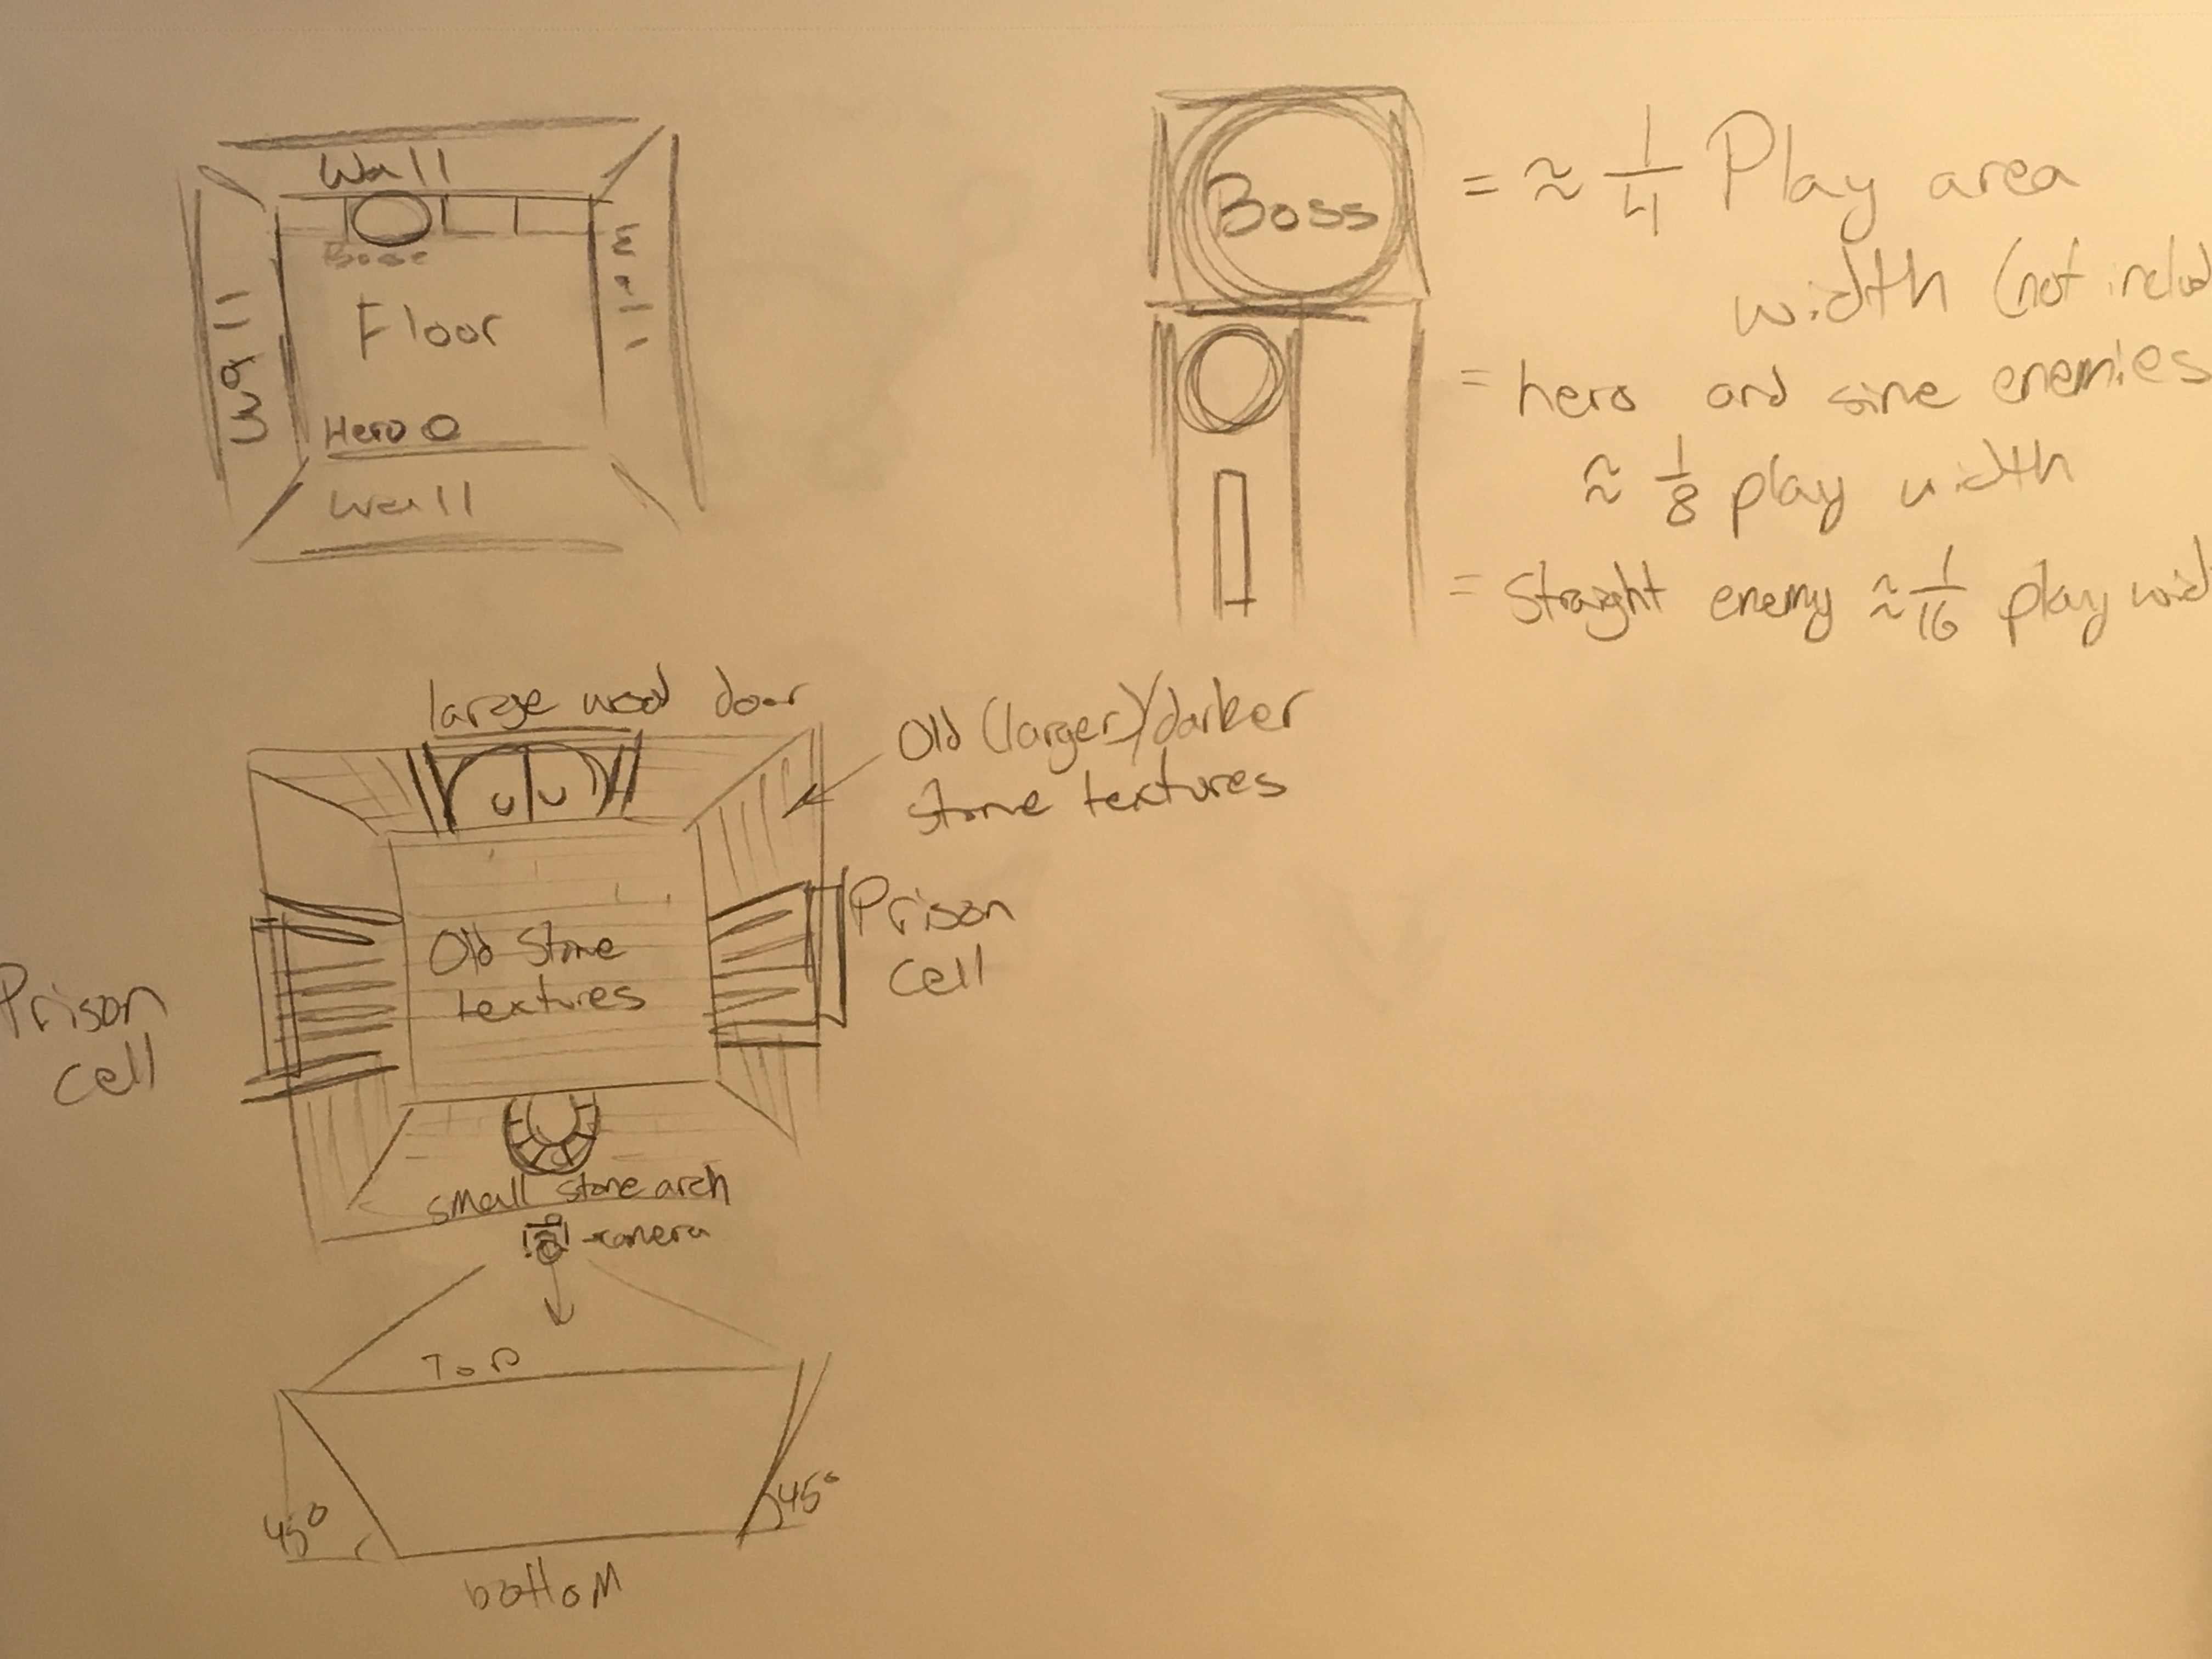 Wall
Boss
Wall
Wall
Floor
Hero
Wall
Boss
= ≈ 1/4 Play area
width (not includ
= hero and sine enemies
≈ 1/8 play width
= Straight enemy ≈ 1/16 play wid
large wood door
Old (larger)/darker
stone textures
Prison
cell
Old Stone
textures
Prison
cell
small stone arch
camera
Top
45°
45°
bottom